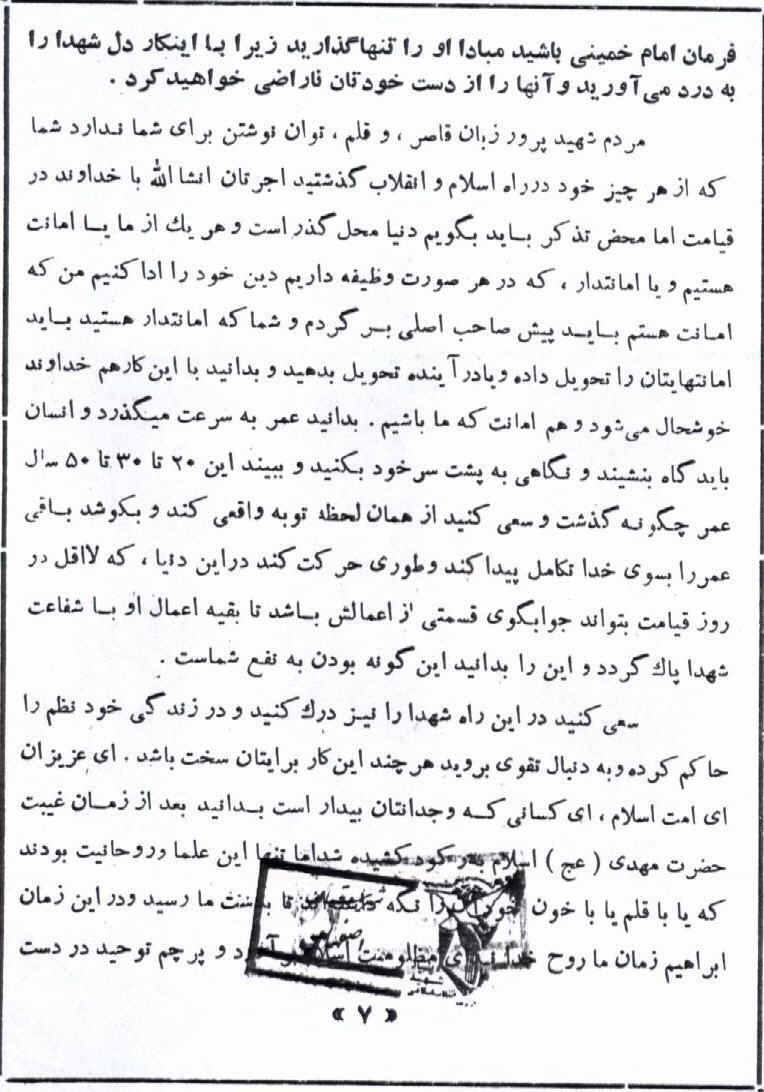 فرمان امام خمینی باشید مبادا او را تنها گذارید زیرا با اینکار دل شهدا را
به درد می‌آورید و آنها را از دست خودتان ناراضی خواهید کرد .
مردم شهید پرور زبان قاصر ، و قلم ، توان نوشتن برای شما ندارد شما
که از هر چیز خود درراه اسلام و انقلاب گذشتید اجرتان انشاالله با خداوند در
قیامت اما محض تذکر باید بگویم دنیا محل گذر است و هر یك از ما یا امانت
هستیم و یا امانتدار ، که در هر صورت وظیفه داریم دین خود را ادا کنیم من که
امانت هستم باید پیش صاحب اصلی بر گردم و شما که امانتدار هستید باید
امانتهایتان را تحویل داده ویادرآینده تحویل بدهید و بدانید با این کارهم خداوند
خوشحال می‌شود و هم امانت که ما باشیم . بدانید عمر به سرعت میگذرد و انسان
باید گاه بنشیند و نگاهی به پشت سرخود بکنید و ببیند این ۲۰ تا ۳۰ تا ۵۰ سال
عمر چگونه گذشت و سعی کنید از همان لحظه توبه واقعی کند و بکوشد باقی
عمر را بسوی خدا تکامل پیدا کند وطوری حرکت کند دراین دنیا ، که لااقل در
روز قیامت بتواند جوابگوی قسمتی از اعمالش باشد تا بقیه اعمال او با شفاعت
شهدا پاك گردد و این را بدانید این گونه بودن به نفع شماست .
سعی کنید در این راه شهدا را نیز درك کنید و در زندگی خود نظم را
حاکم کرده وبه دنبال تقوی بروید هر چند این کار برایتان سخت باشد . ای عزیزان
ای امت اسلام ، ای کسانی که وجدانتان بیدار است بدانید بعد از زمان غیبت
حضرت مهدی ( عج ) اسلام به رکود کشیده شداما تنها این علما وروحانیت بودند
که یا با قلم یا با خون خودآن را نگه داشته‌اند تا بدست ما رسید ودر این زمان
ابراهیم زمان ما روح خدا مظلومیت اسلام و پرچم توحید در دست
« ۷ »